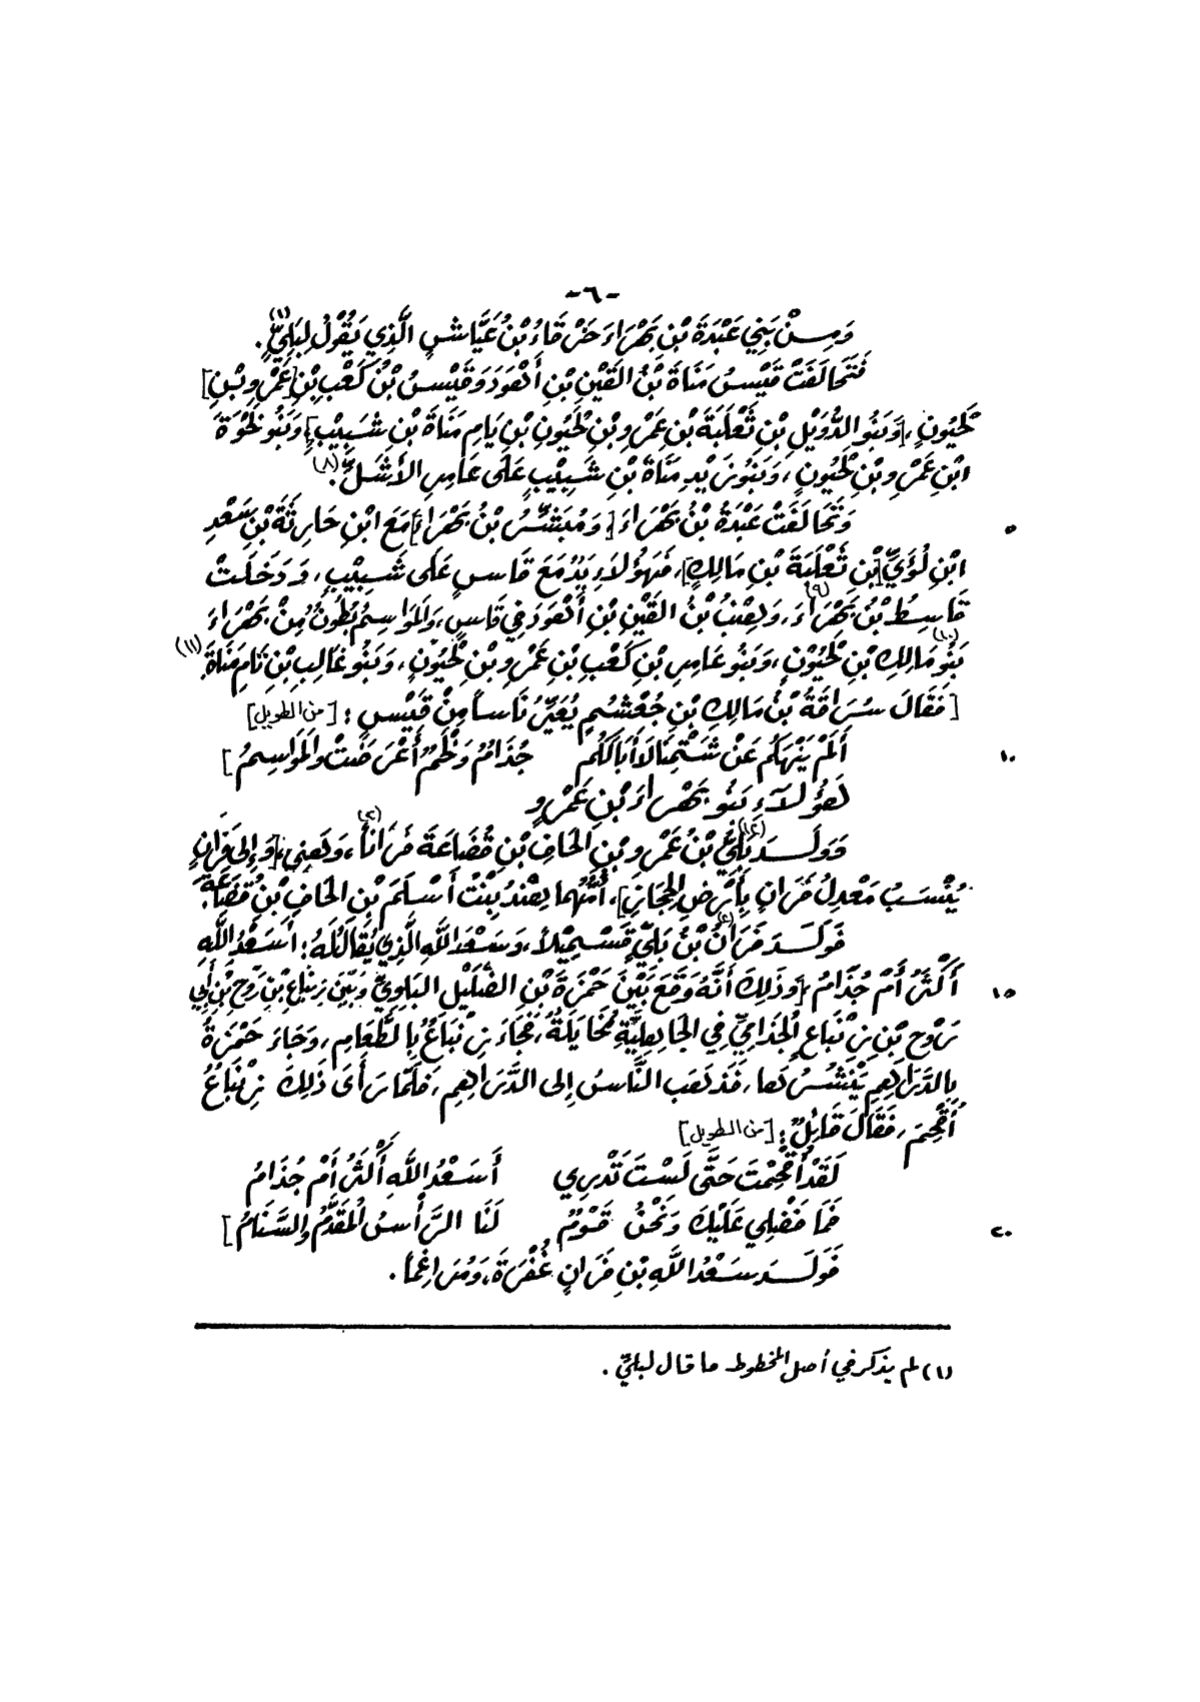 -٦-
وَمِنْ بَنِي عَبْدَةَ بْنِ بَهْرَاءَ حَرْقَاءُ بْنُ عَيَّاشٍ الَّذِي يَقُولُ لِبَلِيٍّ(١).
فَتَحَالَفَتْ قَيْسُ مَنَاةَ بْنُ القَيْنِ بْنِ أَهْوَدَ وَقَيْسُ بْنُ كَعْبِ بْنِ [عَمْرِو بْنِ]
لَحْيُونٍ، [وَبَنُو الدُّوَيْلِ بْنِ ثَعْلَبَةَ بْنِ عَمْرِو بْنِ لَحْيُونِ بْنِ يَامِ مَنَاةَ بْنِ شَبِيْبٍ] وَبَنُو نَحْوَةَ
ابْنِ عَمْرِو بْنِ لَحْيُونٍ، وَبَنُو زَيْدِ مَنَاةَ بْنِ شَبِيْبٍ عَلَى عَامِرِ الأَشَلِّ(٨).
وَتَحَالَفَتْ عَبْدَةُ بْنُ بَهْرَاءَ [وَمُبَشِّرُ بْنُ بَهْرَاءَ] مَعَ ابْنِ حَارِثَةَ بْنِ سَعْدِ
٥
ابْنِ لُؤَيِّ [بْنِ ثَعْلَبَةَ بْنِ مَالِكٍ]، فَهَؤُلَاءِ يَدٌ مَعَ قَاسٍ عَلَى شَبِيْبٍ، وَدَخَلَتْ
قَاسِطُ بْنُ بَهْرَاءَ(٩)، وَهِنْبُ بْنُ القَيْنِ بْنِ أَهْوَدَ فِي قَاسٍ، وَالمَوَاسِمُ بُطُونٌ مِنْ بَهْرَاءَ
بَنُو مَالِكِ بْنِ لَحْيُونٍ(١٠)، وَبَنُو عَامِرِ بْنِ كَعْبِ بْنِ عَمْرِو بْنِ لَحْيُونٍ، وَبَنُو غَالِبِ بْنِ نَامِ مَنَاةَ(١١).
[فَقَالَ سُرَاقَةُ بْنُ مَالِكِ بْنِ جُعْشُمٍ يُعَيِّرُ نَاساً مِنْ قَيْسٍ: [من الطويل]
أَلَمْ يَنْهَكُمْ عَنْ شَتْمِنَا لَا أَبَا لَكُمْ جُذَامٌ وَلَخْمٌ أَعْرَضَتْ وَالمَوَاسِمُ]
١٠
هَؤُلَاءِ بَنُو بَهْرَاءَ بْنِ عَمْرٍو
وَوَلَدَ بَلِيُّ(١٢) بْنُ عَمْرِو بْنِ الحَافِ بْنِ قُضَاعَةَ فَرَاناً(٣)، وَهَنِيَّ، [وَإِلَى فَرَانٍ
يُنْسَبُ مَعْدِنُ فَرَانٍ بِأَرْضِ الحِجَازِ]، أُمُّهُمَا هِنْدُ بِنْتُ أَسْلَمَ بْنِ الحَافِ بْنِ قُضَاعَةَ.
فَوَلَدَ فَرَانُ(٤) بْنُ بَلِيٍّ قَسْمِيْلاً، وَسَعْدَ اللَّهِ الَّذِي يُقَالُ لَهُ: أَسَعْدُ اللَّهِ
أَكْثَرُ أَمْ جُذَامُ، [وَذَلِكَ أَنَّهُ وَقَعَ بَيْنَ حَمْزَةَ بْنِ الضَّلِيْلِ البَلَوِيِّ وَبَيْنَ زِنْبَاعِ بْنِ رَوْحِ بْنِ أَبِي
١٥
رَوْحِ بْنِ زِنْبَاعٍ الجُذَامِيِّ فِي الجَاهِلِيَّةِ مُخَايَلَةٌ، فَجَاءَ زِنْبَاعٌ بِالطَّعَامِ، وَجَاءَ حَمْزَةُ
بِالدَّرَاهِمِ يَنْثُرُهَا، فَذَهَبَ النَّاسُ إِلَى الدَّرَاهِمِ، فَلَمَّا رَأَى ذَلِكَ زِنْبَاعٌ
أُفْحِمَ، فَقَالَ قَائِلٌ: [من الطويل]
لَقَدْ أُفْحِمْتَ حَتَّى لَسْتَ تَدْرِي أَسَعْدُ اللَّهِ أَكْثَرُ أَمْ جُذَامُ
فَمَا فَضْلِي عَلَيْكَ وَنَحْنُ قَوْمٌ لَنَا الرَّأْسُ المُقَدَّمُ وَالسَّنَامُ]
٢٠
فَوَلَدَ سَعْدُ اللَّهِ بْنِ فَرَانٍ غُفْرَةَ، وَمُرَاغِماً.
(١) لم يذكر في أصل المخطوط ما قال لبليّ.